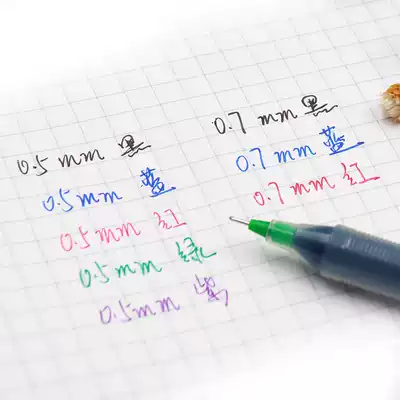 0.5 mm 黑
0.5 mm 蓝
0.5 mm 红
0.5 mm 绿
0.5 mm 紫
0.7 mm 黑
0.7 mm 蓝
0.7 mm 红